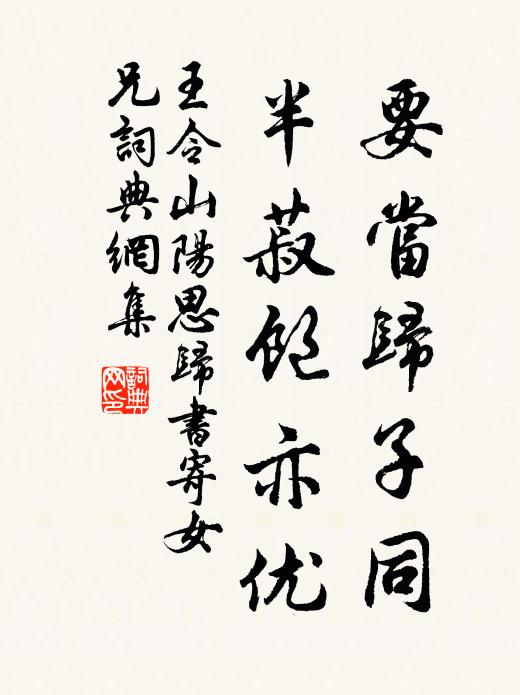 要當歸子同
半菽飽亦优
王令山陽思歸書寄女
兄詞典網集
詞典网印